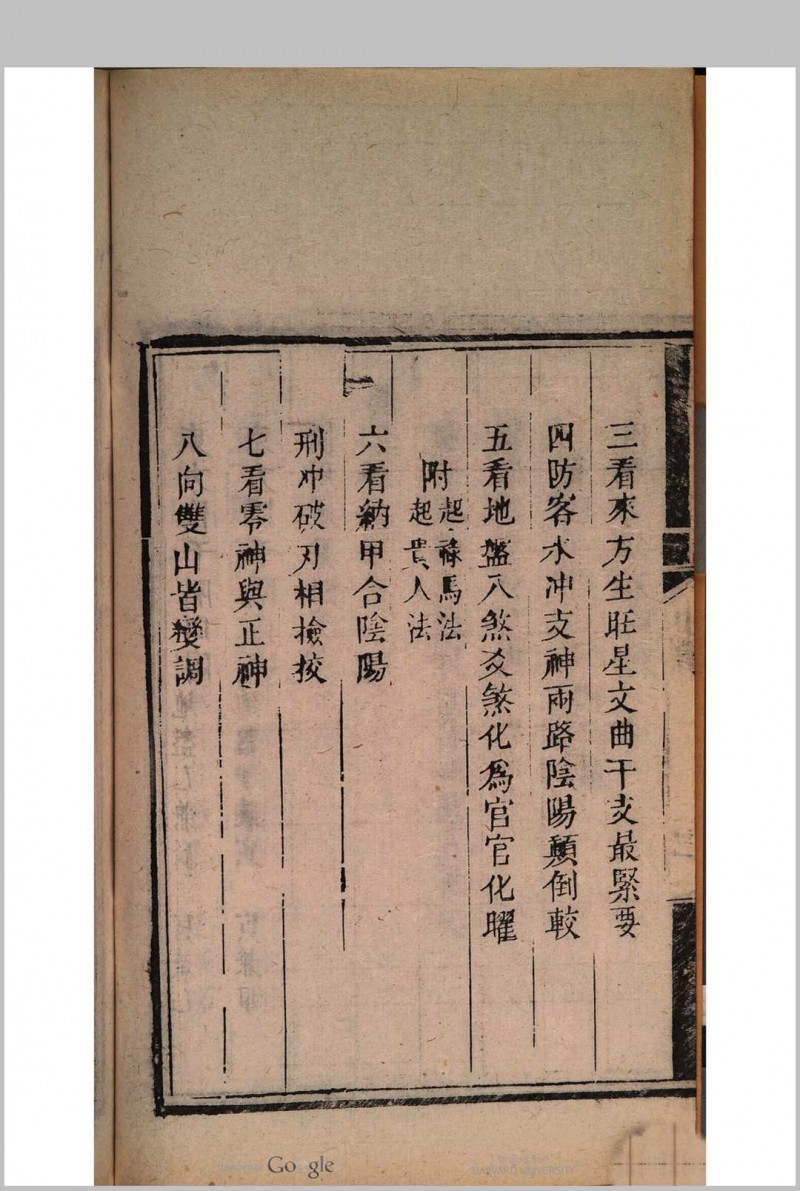 三看來方生旺星文曲干支最緊要
四防客水冲支神兩路陰陽顛倒較
五看地盤八煞爻煞化爲官官化曜
附起祿馬法
起貴人法
六看納甲合陰陽
刑冲破刃相撿挍
七看零神與正神
八向雙山皆變調
Google
HARVARD UNIVERSITY